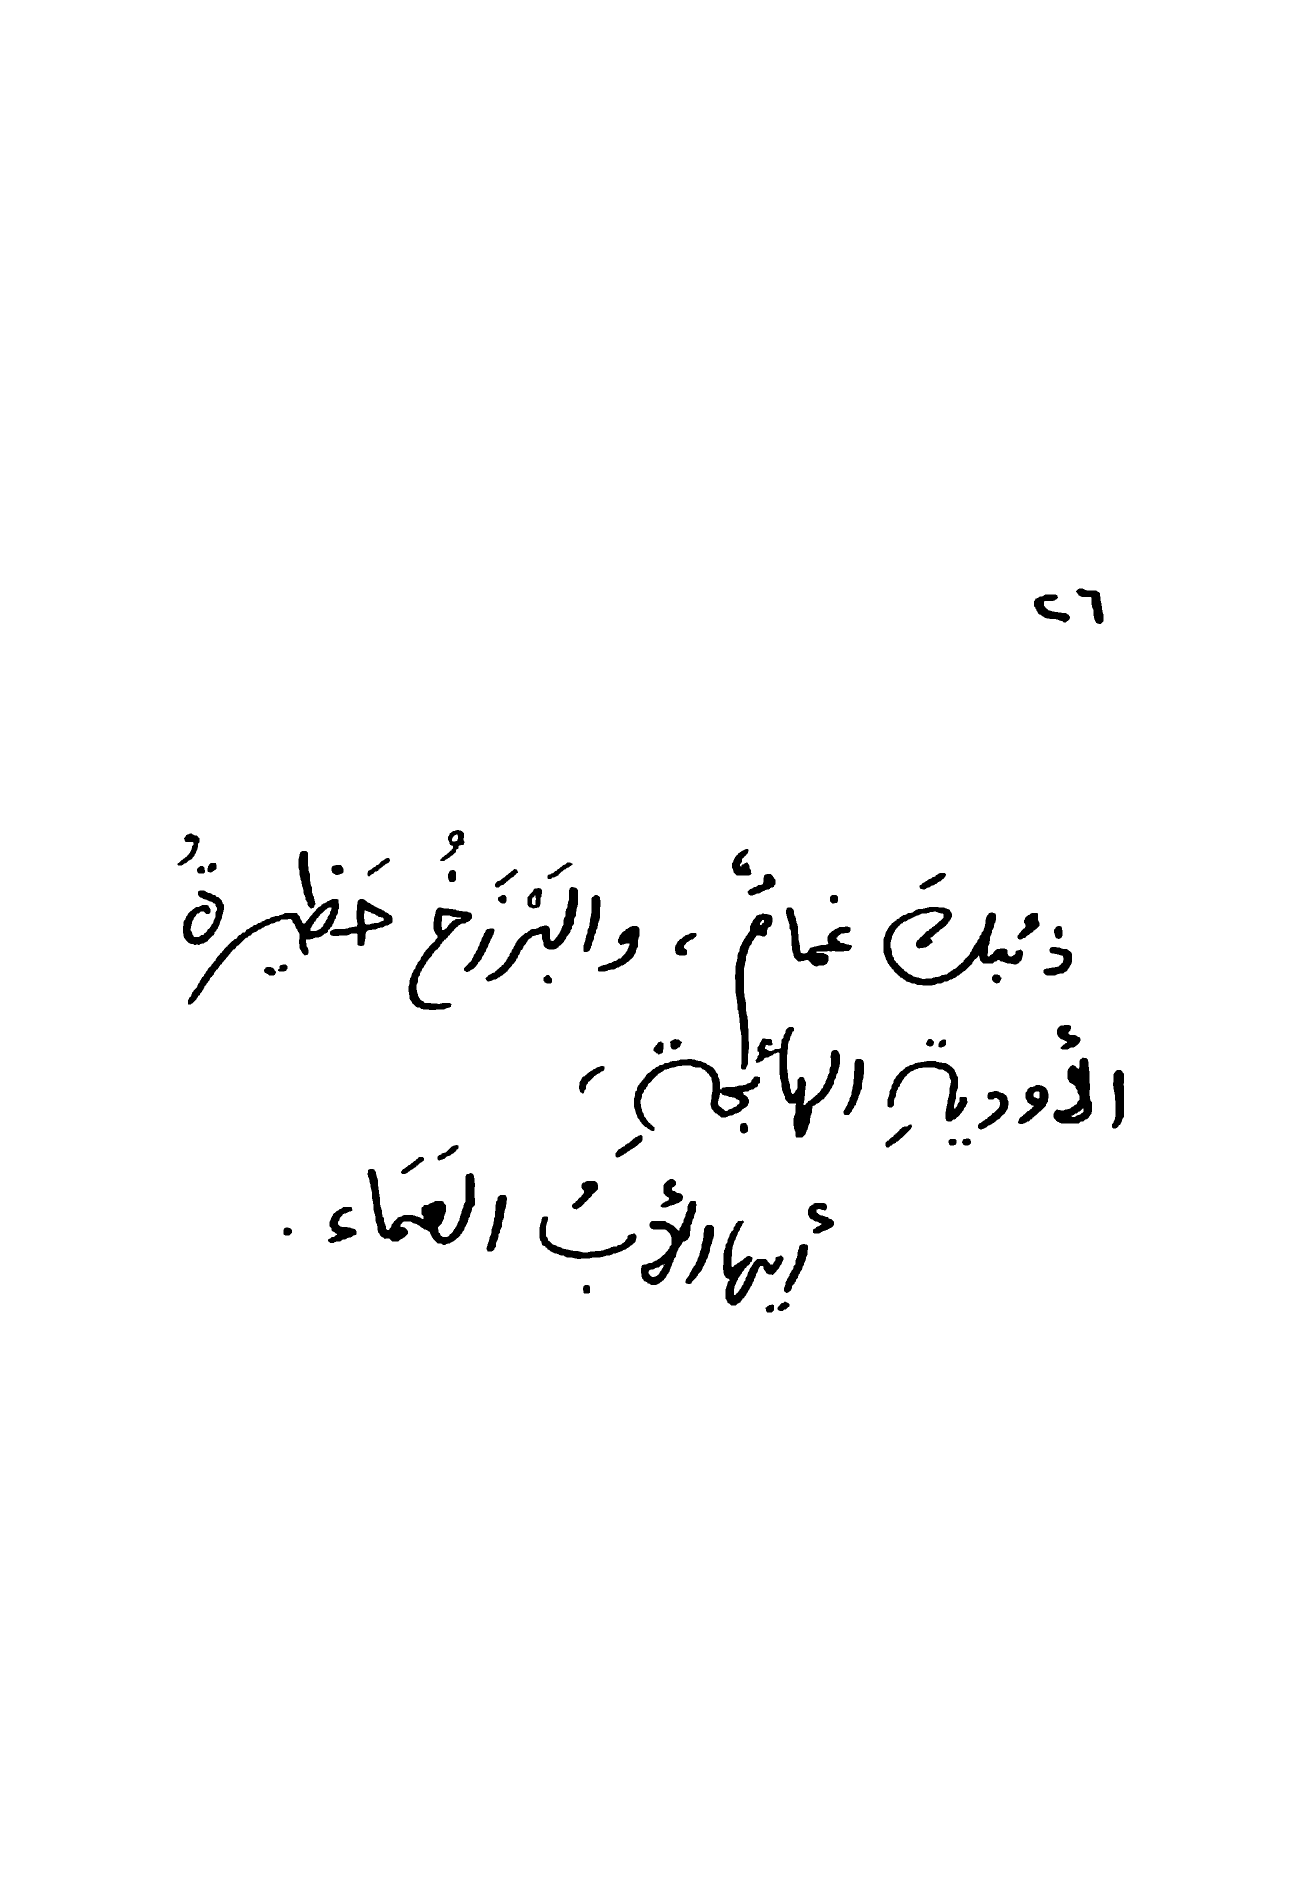 ٢٦
ذئبكَ غمامٌ ، والبَرْزَخُ حَظيرةُ
الأوديةِ الهائجةِ ،
أيها الأبُ العَمَاء .